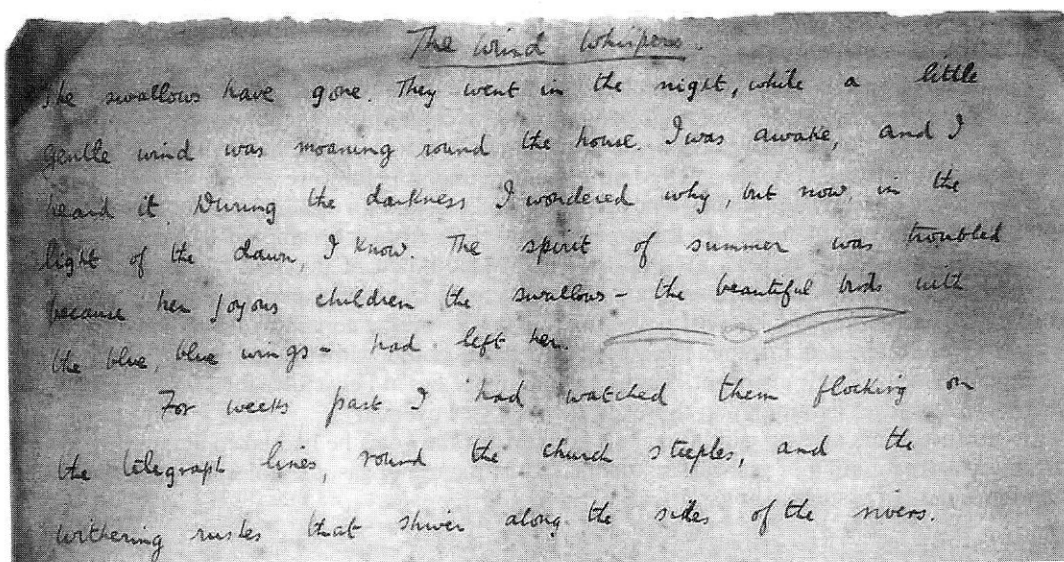 The Wind Whispers.
The swallows have gone. They went in the night, while a little
gentle wind was moaning round the house. I was awake, and I
heard it. During the darkness I wondered why, but now, in the
light of the dawn, I know. The spirit of summer was troubled
because her joyous children the swallows - the beautiful birds with
the blue, blue wings - had left her.
For weeks past I had watched them flocking on
the telegraph lines, round the church steeples, and the
withering rushes that shiver along the sides of the rivers.